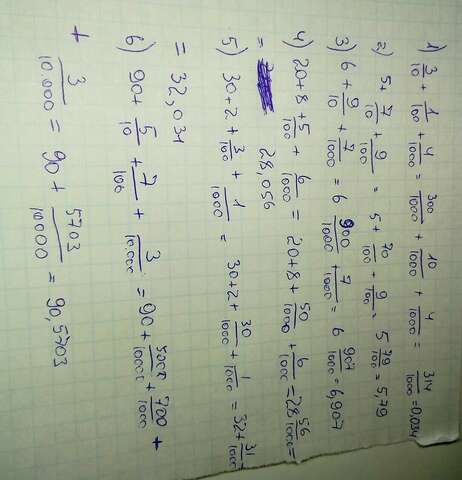 1) 3/10 + 1/100 + 4/1000 = 300/1000 + 10/1000 + 4/1000 = 314/1000 = 0,034
2) 5 + 7/10 + 9/100 = 5 + 70/100 + 9/100 = 5 79/100 = 5,79
3) 6 + 9/10 + 7/1000 = 6 900/1000 + 7/1000 = 6 907/1000 = 6,907
4) 20 + 8 + 5/100 + 6/1000 = 20 + 8 + 50/1000 + 6/1000 = 28 56/1000 =
= 28,056
5) 30 + 2 + 3/100 + 1/1000 = 30 + 2 + 30/1000 + 1/1000 = 32 + 31/1000
= 32,031
6) 90 + 5/10 + 7/100 + 3/10.000 = 90 + 5000/1000 + 700/1000 +
+ 3/10.000 = 90 + 5703/10000 = 90,5703